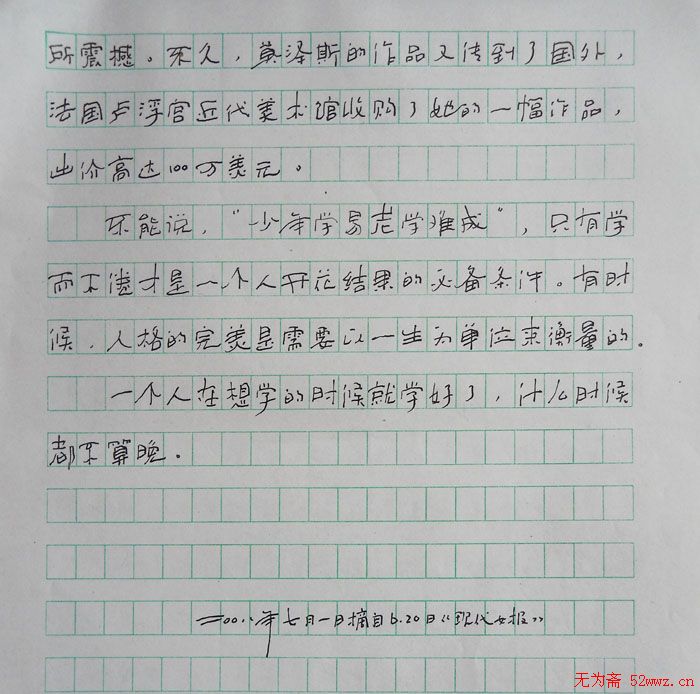 所震撼。不久，莫泽斯的作品又传到了国外，
法国卢浮宫近代美术馆收购了她的一幅作品，
出价高达100万美元。
不能说，“少年学易老学难成”，只有学
而不倦才是一个人开花结果的必备条件。有时
候，人格的完美是需要以一生为单位来衡量的.
一个人在想学的时候就学好了，什么时候
都不算晚.
年七月一日摘自6.20日《现代女报》
无为斋 52wwz.cn